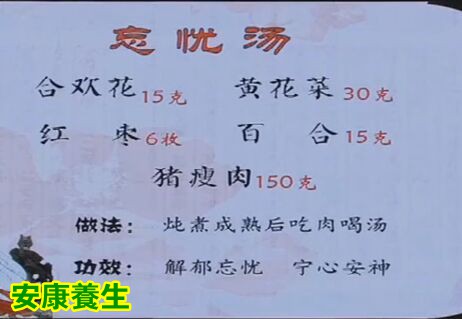 忘忧汤
合欢花15克 黄花菜30克
红枣6枚 百合15克
猪瘦肉150克
做法: 炖煮成熟后吃肉喝汤
功效: 解郁忘忧 宁心安神
安康養生